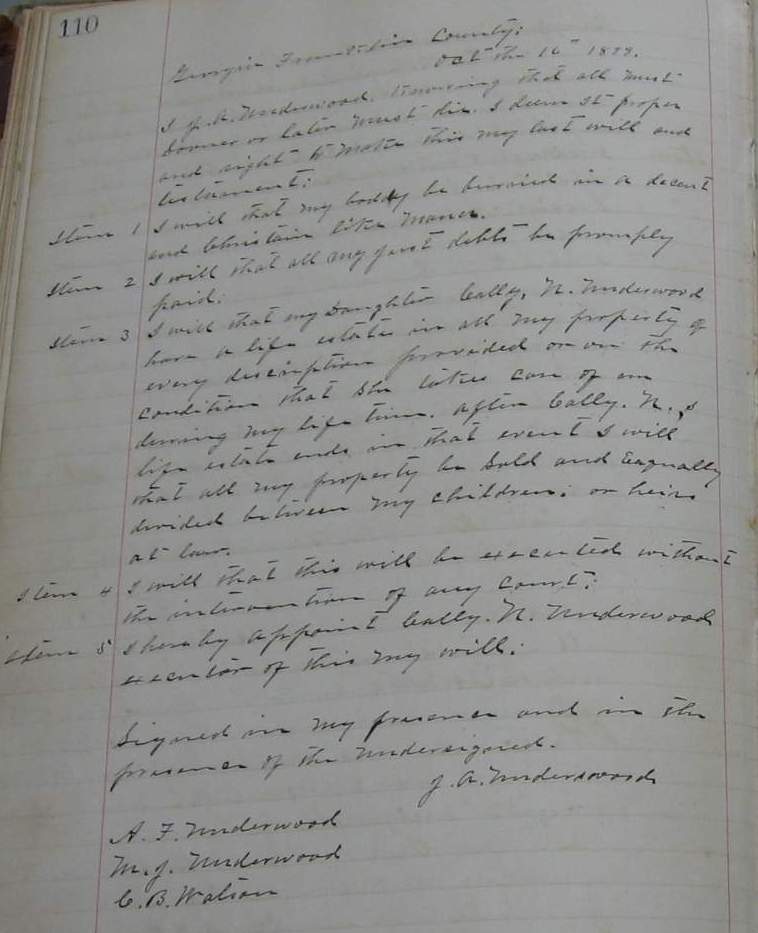 110
Georgia Franklin County:
Oct the 16th
I J. A. Underwood. Knowing that all must
Sooner or later must die. I deem it proper
and right to make this my last will and
testament:
Item 1 I will that my boddy be burried in a decent
and Christain like maner.
Item 2 I will that all my just debts be promply
paid.
Item 3 I will that my Daughter Cally. N. Underwood
have a life estate in all my property of
every discription provided on the
condition that she takes care of me
during my life time. after Cally. N.s
life estate ends in that event I will
that all my property be Sold and Eaqually
divided between my children: or heirs
at law.
Item 4 I will that this will be executed without
the intervention of any court:
Item 5 I hereby appoint Cally. N. Underwood
executor of this my will:
Signed in my presence and in the
presence of the undersigned.
J. A. Underwood
A. F. Underwood
M. J. Underwood
C. B. Watson